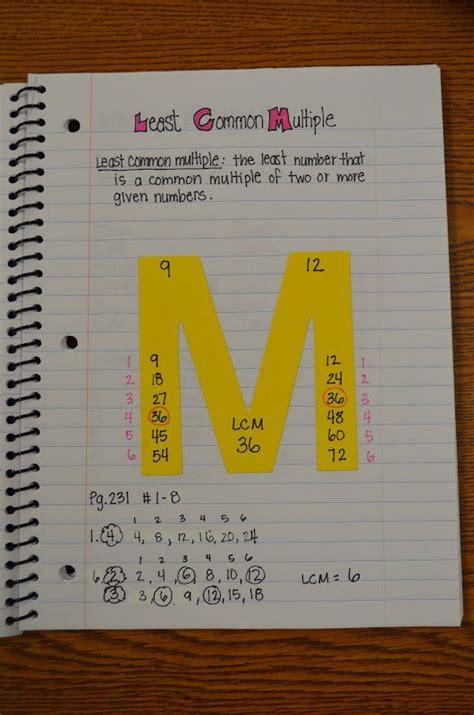 Least Common Multiple
Least common multiple: the least number that
is a common multiple of two or more
given numbers.
9 12
1 9 12 1
2 18 24 2
3 27 36 3
4 36 48 4
5 45 60 5
6 54 72 6
LCM
36
Pg. 231 #1-8
1 2 3 4 5 6
1. 4 4, 8, 12, 16, 20, 24
1 2 3 4 5 6
6. 2 2, 4, 6, 8, 10, 12 LCM = 6
3 3, 6, 9, 12, 15, 18